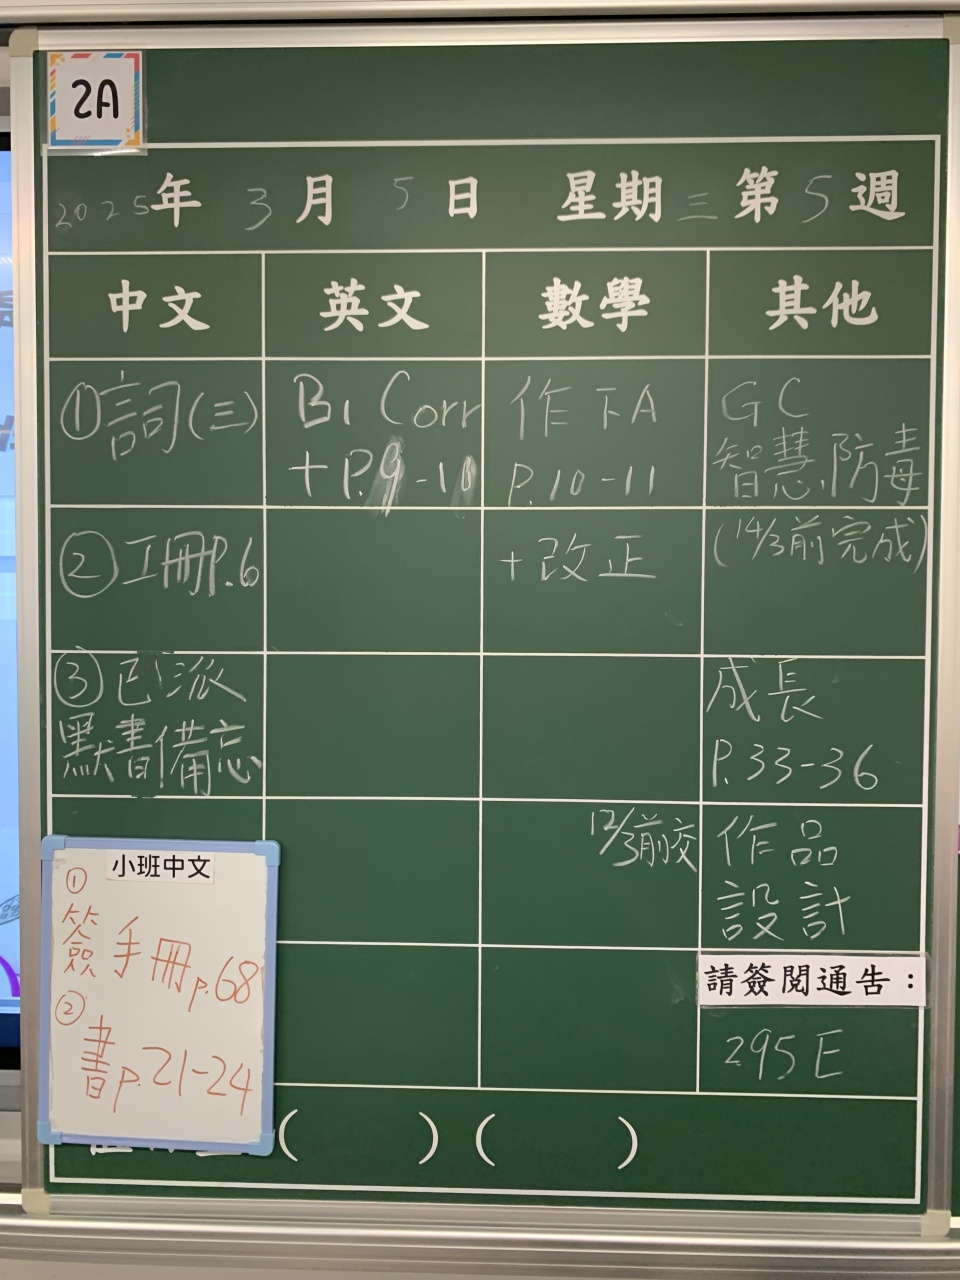 2A
2025年 3月 5日 星期三 第5週
中文 英文 數學 其他
①詞(三)
②工冊P.6
③已派
默書備忘
B1 Corr
+ P.9-10
作下A
P.10-11
+改正
GC
智慧防毒
(14/3前完成)
成長
P.33-36
12/3前交 作品
設計
請簽閱通告：
295E
小班中文
①
簽手冊p.68
②
書p.21-24
( ) ( )